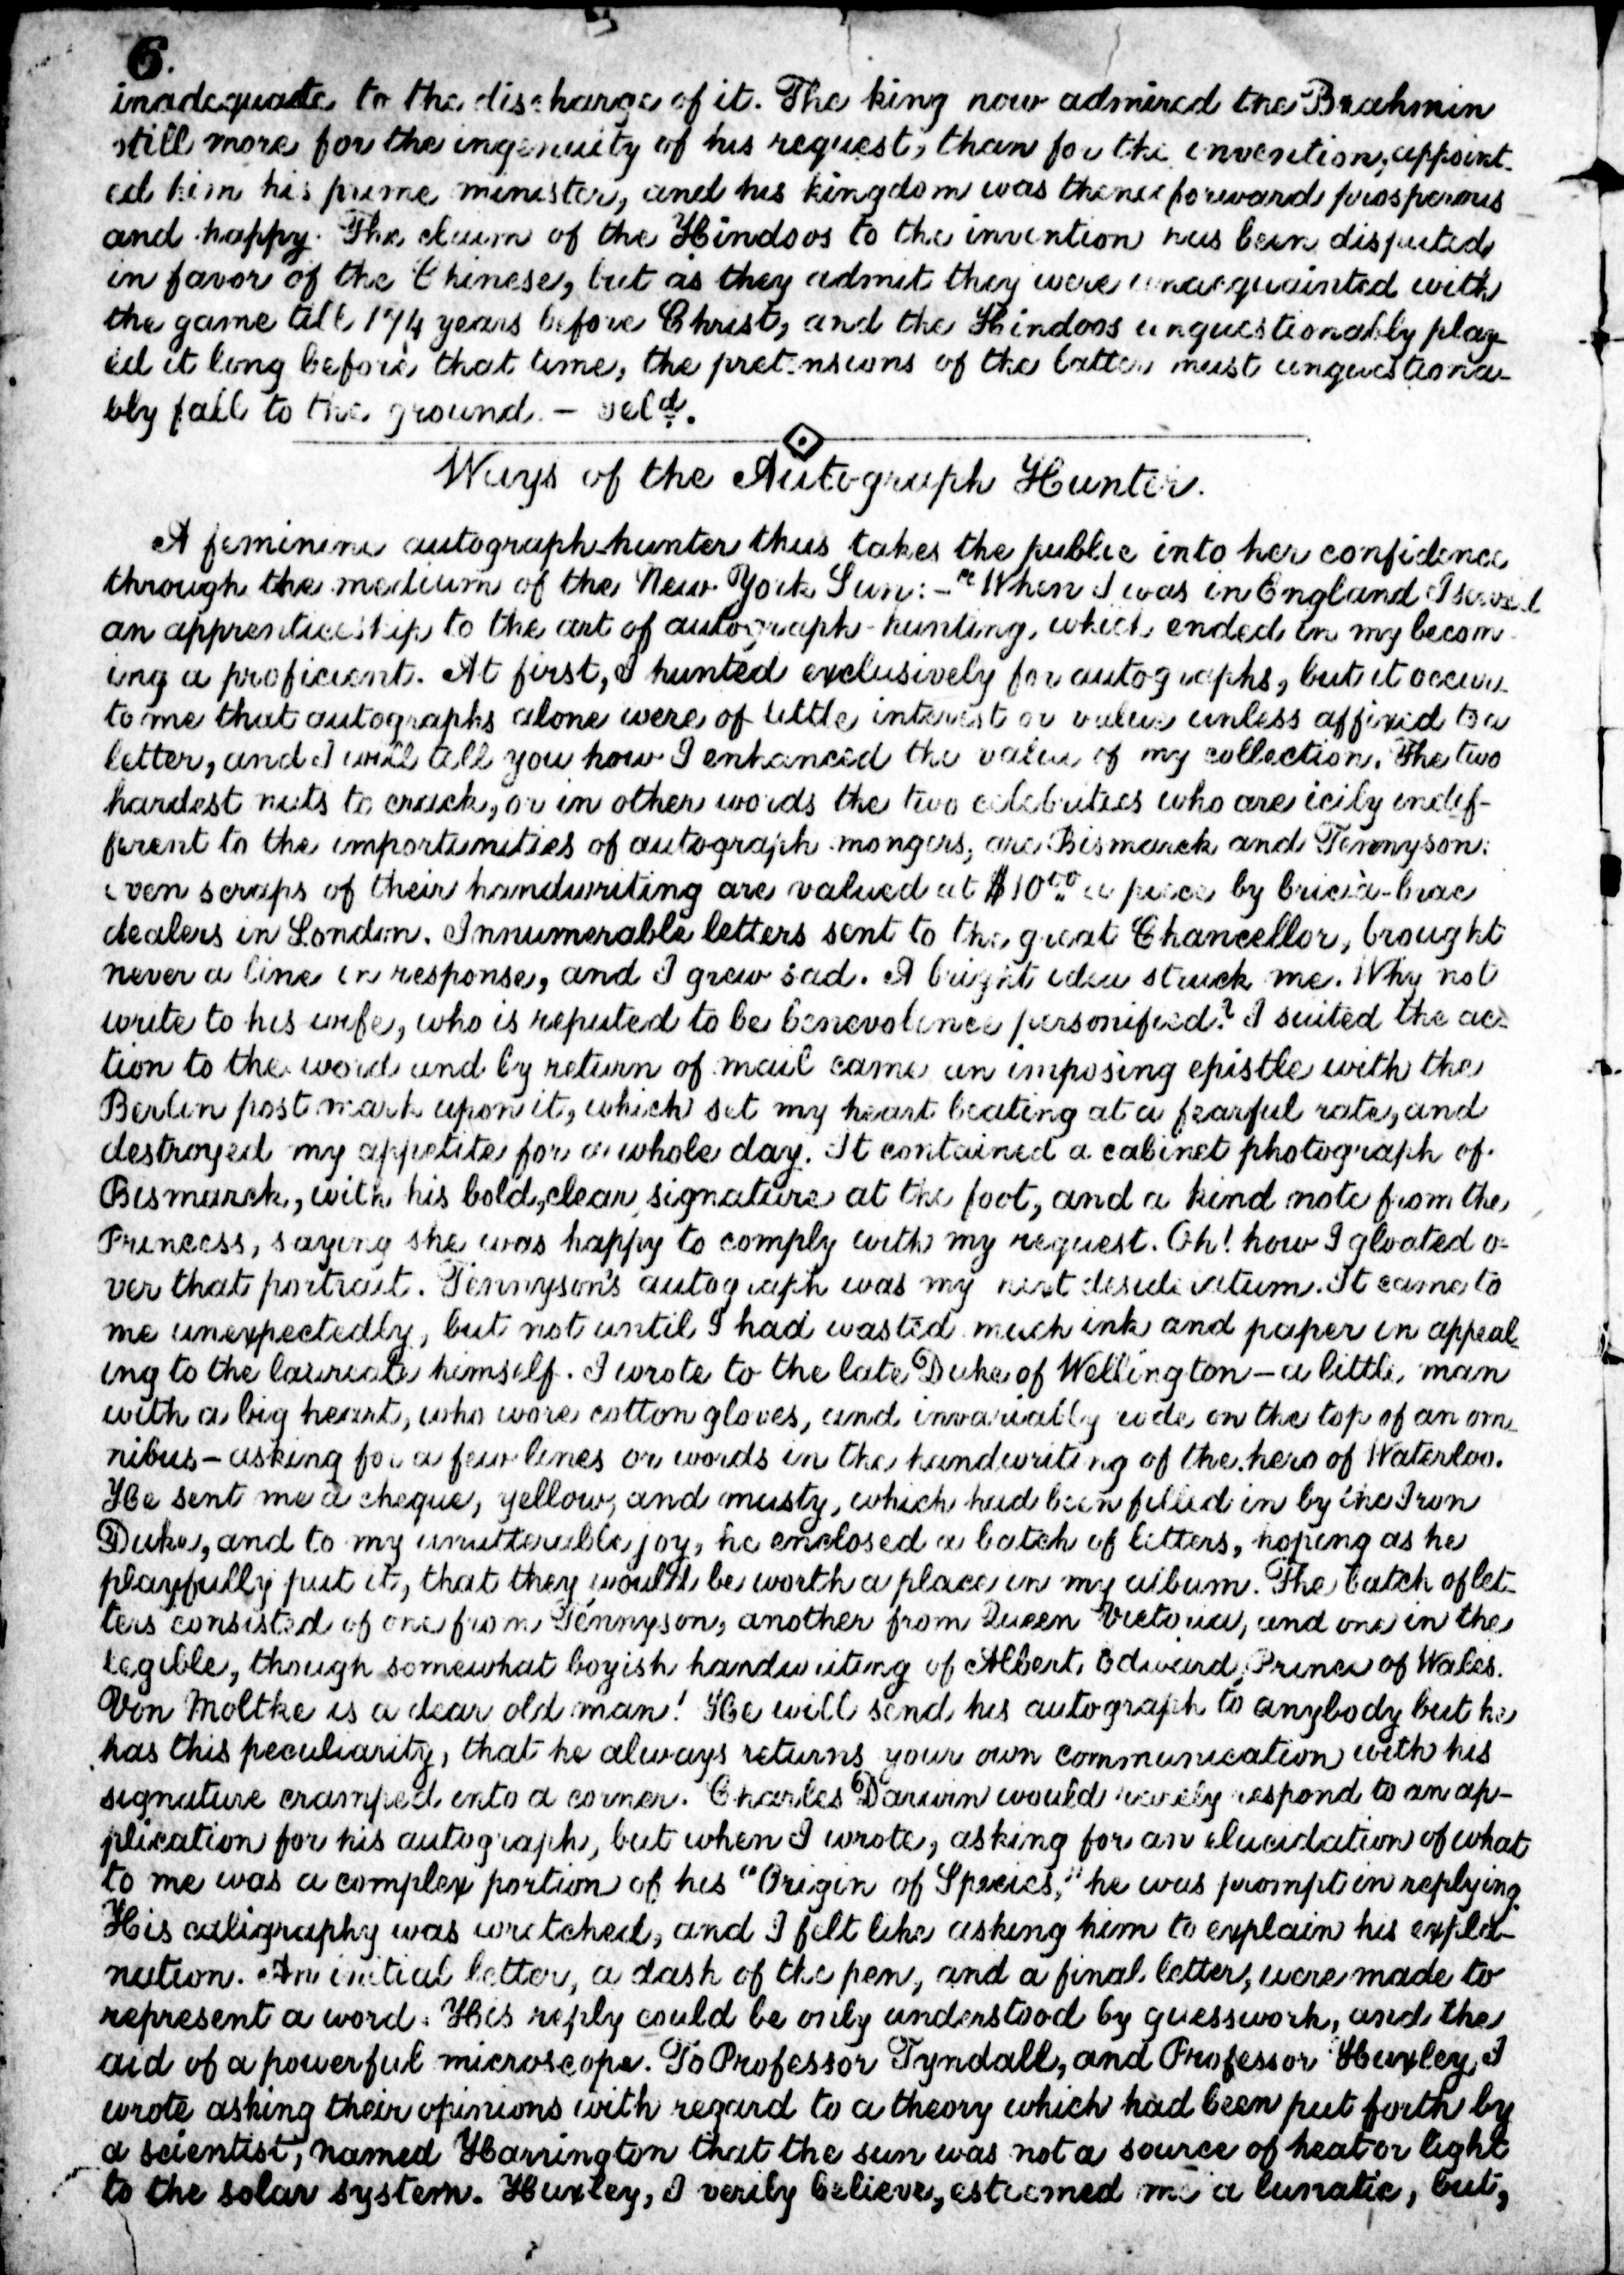 6.
inadequate to the discharge of it. The king now admired the Brahmin
still more for the ingenuity of his request, than for the invention, appoint-
ed him his prime minister, and his kingdom was thenceforward prosperous
and happy. The claim of the Hindoos to the invention has been disputed
in favor of the Chinese, but as they admit they were unacquainted with
the game till 174 years before Christ, and the Hindoos unquestionably play-
ed it long before that time, the pretensions of the latter must unquestiona-
bly fall to the ground. - Seld.
Ways of the Autograph Hunter.
A feminine autograph-hunter thus takes the public into her confidence
through the medium of the New York Sun: - "When I was in England I served
an apprenticeship to the art of autograph-hunting, which ended in my becom-
ing a proficient. At first, I hunted exclusively for autographs, but it occur-
to me that autographs alone were of little interest or value unless affixed to a
letter, and I will tell you how I enhanced the value of my collection. The two
hardest nuts to crack, or in other words the two celebrities who are icily indif-
ferent to the importunities of autograph mongers, are Bismarck and Tennyson:
even scraps of their handwriting are valued at $10.00 a piece by bric-a-brac
dealers in London. Innumerable letters sent to the great Chancellor, brought
never a line in response, and I grew sad. A bright idea struck me. Why not
write to his wife, who is reputed to be benevolence personified? I suited the ac-
tion to the word and by return of mail came an imposing epistle with the
Berlin post mark upon it, which set my heart beating at a fearful rate, and
destroyed my appetite for a whole day. It contained a cabinet photograph of
Bismarck, with his bold, clear signature at the foot, and a kind note from the
Princess, saying she was happy to comply with my request. Oh! how I gloated o-
ver that portrait. Tennyson's autograph was my next desideratum. It came to
me unexpectedly, but not until I had wasted much ink and paper in appeal-
ing to the laureate himself. I wrote to the late Duke of Wellington - a little man
with a big heart, who wore cotton gloves, and invariably rode on the top of an om-
nibus - asking for a few lines or words in the handwriting of the hero of Waterloo.
He sent me a cheque, yellow, and musty, which had been filled in by the Iron
Duke, and to my unutterable joy, he enclosed a batch of letters, hoping as he
playfully put it, that they would be worth a place in my album. The batch of let-
ters consisted of one from Tennyson, another from Queen Victoria, and one in the
legible, though somewhat boyish handwriting of Albert Edward, Prince of Wales.
Von Moltke is a dear old man! He will send his autograph to anybody but he
has this peculiarity, that he always returns your own communication with his
signature cramped into a corner. Charles Darwin would rarely respond to an ap-
plication for his autograph, but when I wrote, asking for an elucidation of what
to me was a complex portion of his "Origin of Species," he was prompt in replying.
His caligraphy was wretched, and I felt like asking him to explain his expla-
nation. An initial letter, a dash of the pen, and a final letter, were made to
represent a word. His reply could be only understood by guesswork, and the
aid of a powerful microscope. To Professor Tyndall, and Professor Huxley, I
wrote asking their opinions with regard to a theory which had been put forth by
a scientist, named Harrington that the sun was not a source of heat or light
to the solar system. Huxley, I verily believe, esteemed me a lunatic, but,